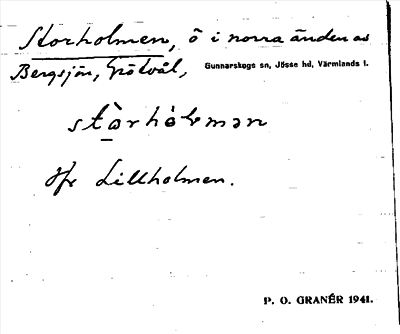 Storholmen, ö i norra änden av
Bergsjön, Grötvål, Gunnarskogs sn, Jösse hd, Värmlands l.
Jfr Lillholmen.
P. O. GRANÉR 1941.